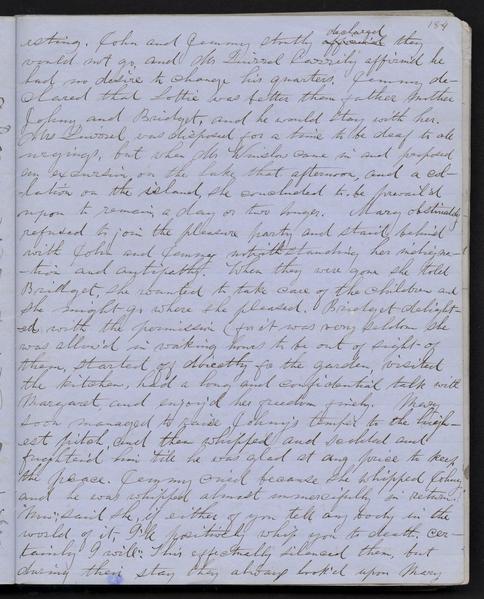 184
esting. John and Jemmy stoutly declared they
would not go, and Mr Squirrel Correctly affirm'd he
had no desire to change his quarters. Jemmy de-
clared that Lottie was better than father Mother
Johny and Bridget, and he would stay with her.
Mrs Squirrel was disposed for a time to be deaf to all
urgings, but when Mr Winslow came in and proposed
an excursion on the lake, that afternoon, and a col-
lation on the island, she concluded to be prevail'd
upon to remain a day or two longer. Mary obstinately
refused to join the pleasure party and staid behind
with John and Jemmy notwithstanding her indigna-
-tion and antipathy. When they were gone she told
Bridget, she wanted to take care of the children and
she might go where she pleased. Bridget delight-
ed with the permission (for it was very seldom she
was allow'd in waking hours to be out of sight of
them, started off directly for the garden, visited
the kitchen, had a long and confidential talk with
Margaret and enjoy'd her freedom finely. Mary
soon managed to raise Johny's temper to the high-
est pitch, and then whipped and scolded and
frighten'd him till he was glad at any price to keep
the peace. Jemmy cried because she whipped Johny
and he was whipped almost unmercifully in return.
said she, if either of you tell any body in the
world of it, I'll positively whip you to death, cer-
tainly I will. This effectually silenced them, but
during their stay they always look'd upon Mary